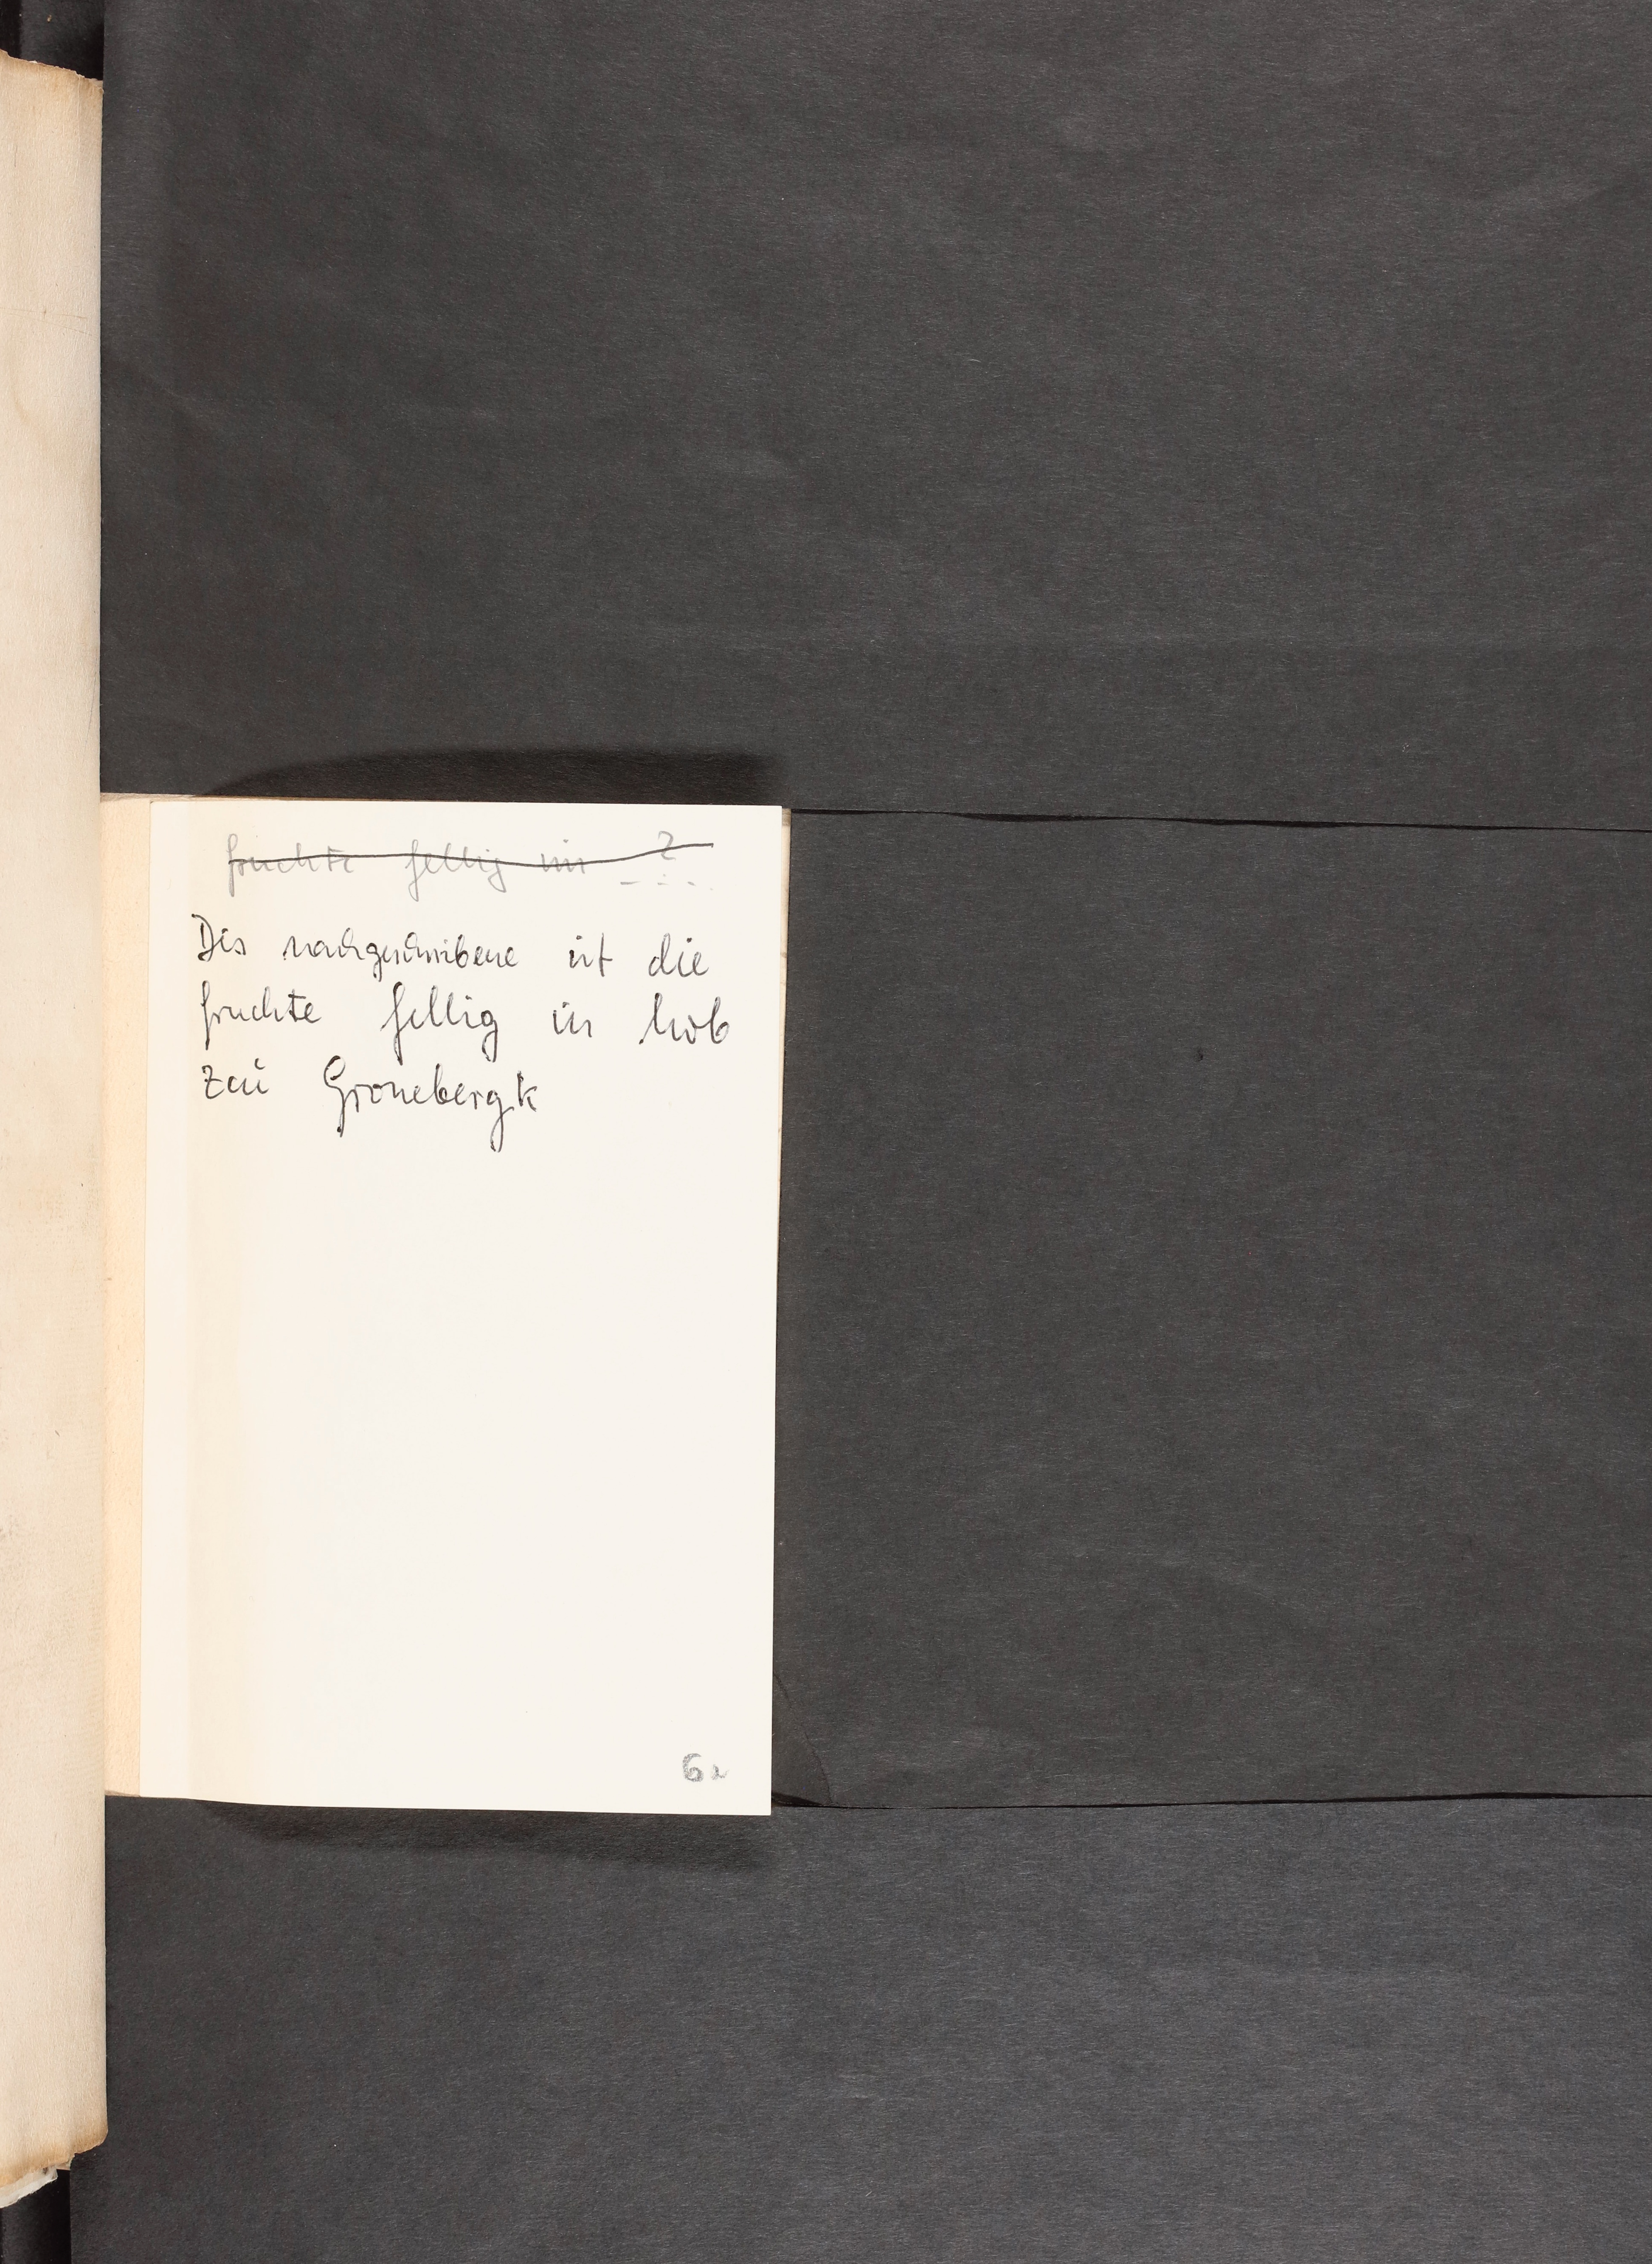 fruchte fellig in ?
Dis nachgeschribene ist die
fruchte fellig in hob
zcu Gronebergk
6a